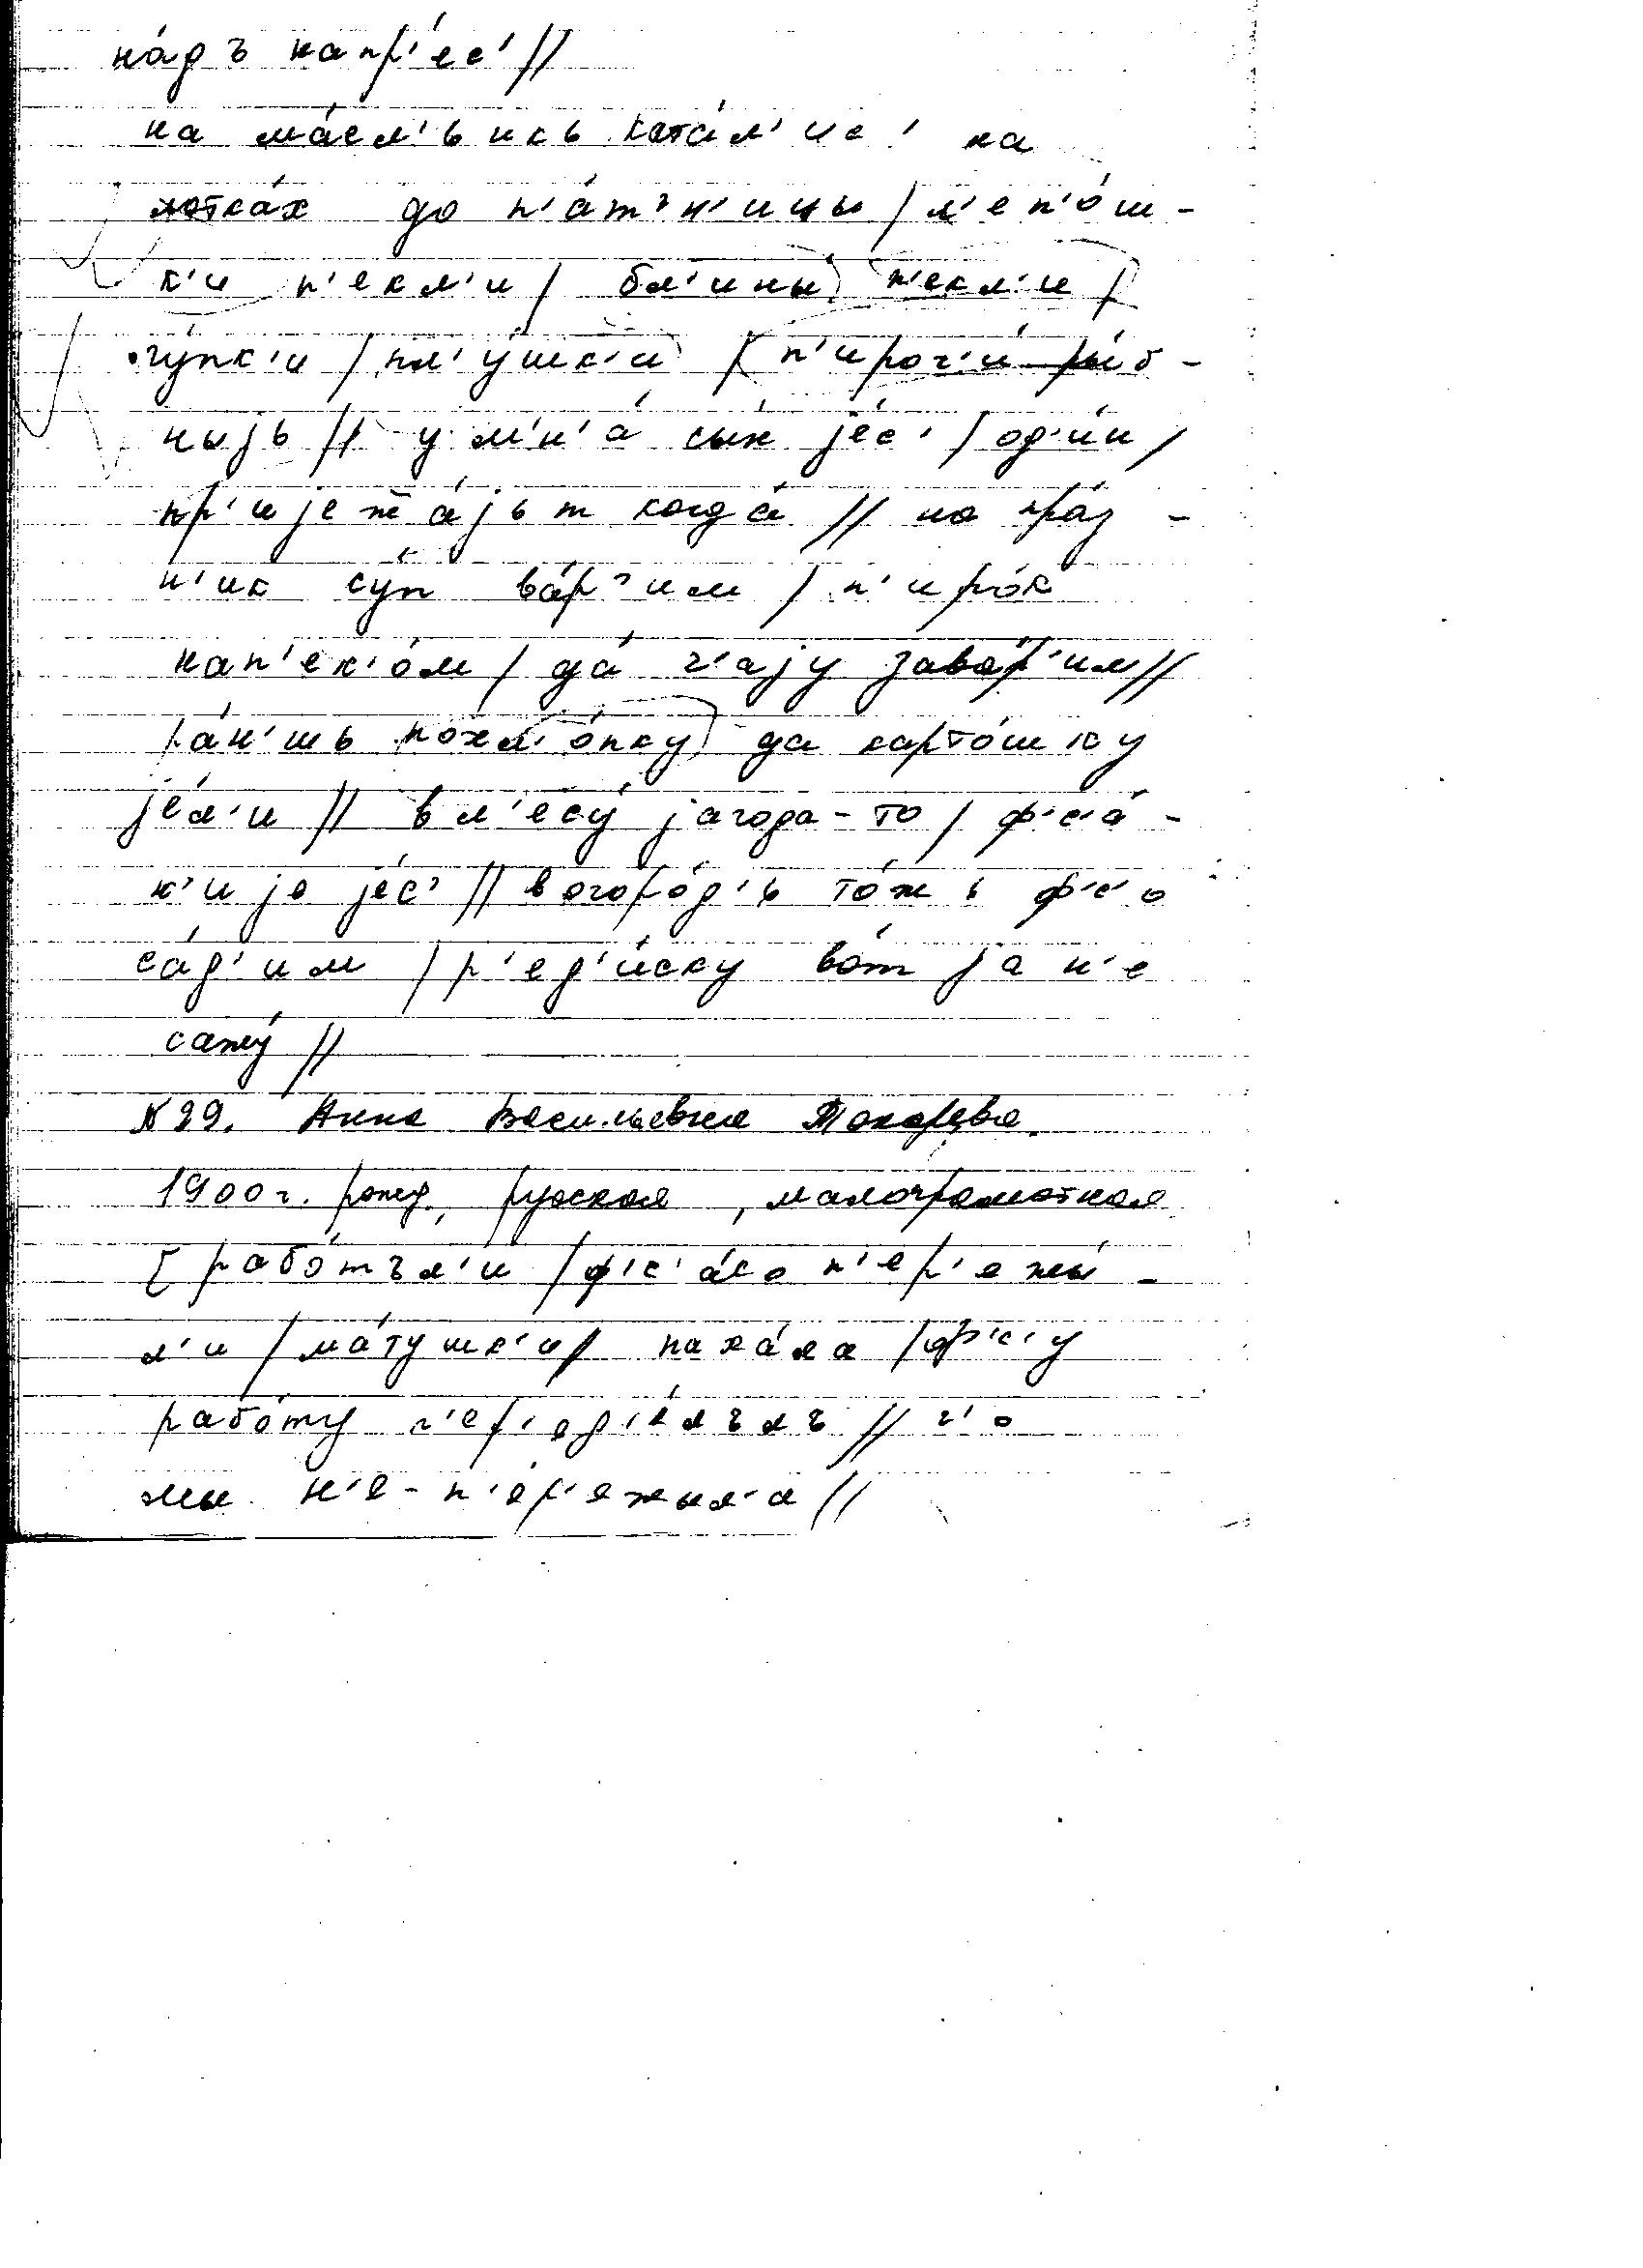 на́дъ напр'ес'//
на ма́сл'ьикь ката́л'ис' на
лотка́х до п'а́т'н'ицы / л'еп'о́ш-
к'и п'екл'и / бл'ины п'екл'и /
гу́пк'и / пл'у́шк'и / п'ирог'и́ ры́б-
ныjь // у м'н'а́ сын jе́с' / од'и́н /
пр'иjежа́jьт когда́ // на пра́з-
н'ик су́п ва́р'им / п'иро́к
нап'ек'о́м / да́ ч'аjу зава́р'им //
ра́н'шь похл'о́пку да карто́шку
jе́л'и // в л'есу́ jагода-то / ф'с'а́-
к'иjе jе́с' // вогоро́д'ь то́жь ф'с'о
са́д'им / р'ед'и́ску во́т jа н'е
сажу́ //
№29. Анна Васильевна Токарева.
1900г. рожд., русская, малограмотная
[ рабо́тъл'и / ф'с'а́ко п'ер'ежы́-
л'и / ма́тушк'и / паха́ла / ф'с'у
рабо́ту п'ер'ед'е́лълъ // ч'о
мы н'е-п'ер'ежыл'и //